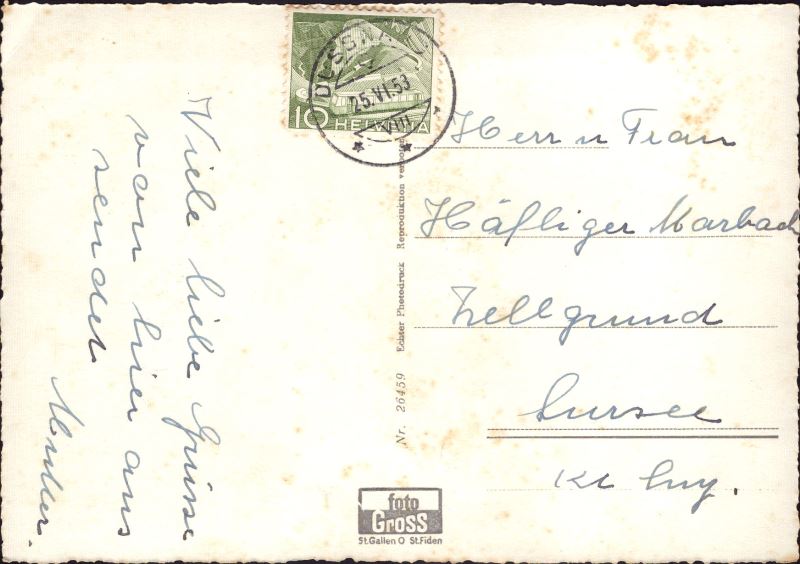 Viele liebe Grüsse
von hier aus
sendet
Mutter.
10 HELVETIA
25.VI.53
VIII
Nr. 26459 Echter Photodruck Reproduktion verboten
Herrn u Frau
Häfliger Marbach
Zellgrund
Sursee
Kt Luz.
foto
Gross
St.Gallen O St.Fiden